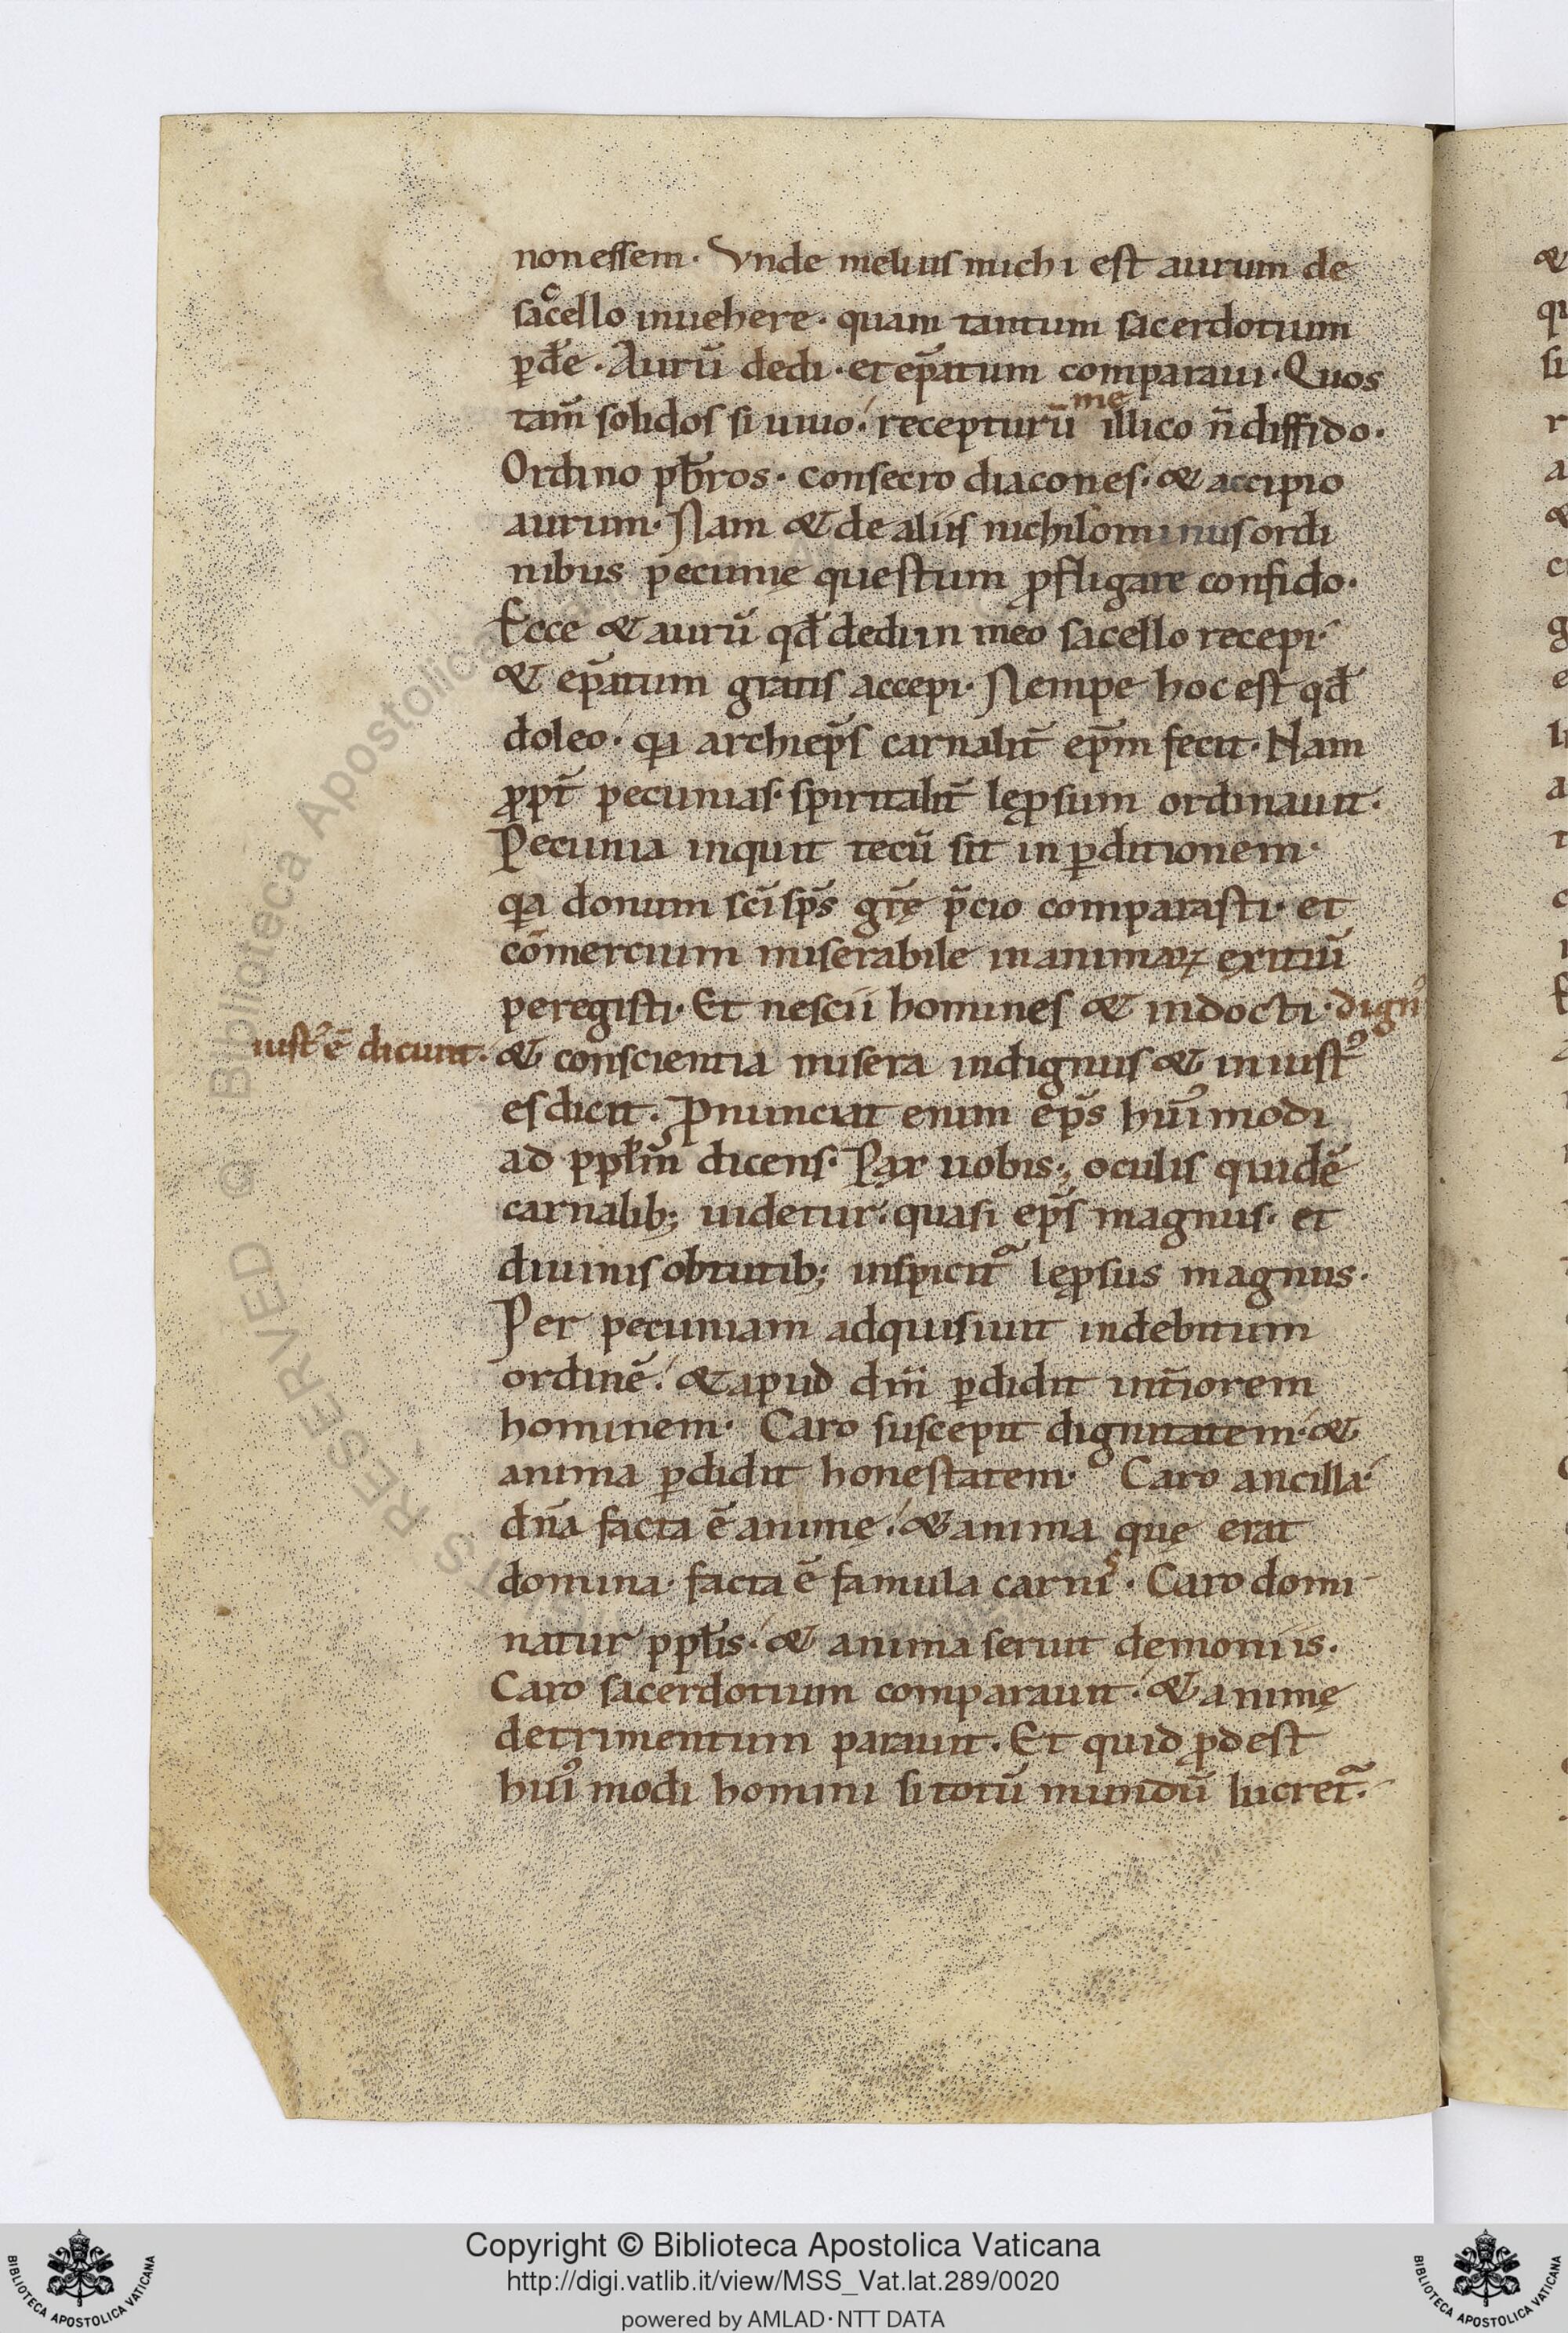 non essem. Vnde melius michi est aurum de
sacello inuehere. quam tantum sacerdotium
ꝑdĕe. Aurū dedi. et ep̄atum comparaui. Quos
tam̄ solidos si uiuo. recepturū me illico n̄ diffido.
Ordino pƀros. consecro diacones. & accipio
aurum. Nam & de aliis nichilominus ordi
nibus pecunię questum ꝓfligare confido.
Ecce & aurū qđ dedi in meo sacello recepi.
& ep̄atum gratis accepi. Nempe hoc est qđ
doleo. qa archiep̄s carnalit̄ ep̄m fecit. Nam
ꝓpt̄ pecunias. spiritalit̄ leꝓsum ordinauit.
Pecunia inquit tecū sit in ꝑditionem.
qa donum sc̄i sp̄s gr̄ę p̄cio comparasti. et
cōmercium miserabile in animaꝝ exitiū
peregisti. Et nescii homines & indocti. dignꝰ
iustꝰ ē dicunt. & conscientia misera indignus & iniustꝰ
es dicit. Pronunciat enim ep̄s huꝰmodi
ad ppl̄m dicens. Pax uobis; oculis quidē
carnalib; uidetur. quasi ep̄s magnus. et
diuinis obtutib; inspicit᷑ leꝓsus magnus.
Per pecuniam adquisiuit indebitum
ordinē. & apud dm̄ ꝑdidit int̄iorem
hominem. Caro suscepit dignitatem. &
anima ꝑdidit honestatem. Caro ancilla.
dn̄a facta ē animę. & anima quę erat
domina. facta ē famula carnis. Caro domi
natur ppl̄is. & anima seruit demoniis.
Caro sacerdotium comparauit. & animę
detrimentum parauit. Et quid ꝓdest
huꝰmodi homini si totū mundū lucret᷑.
© Biblioteca Apostolica Vaticana
RESERVED
RIGHTS
BIBLIOTECA APOSTOLICA VATICANA
Copyright © Biblioteca Apostolica Vaticana
http://digi.vatlib.it/view/MSS_Vat.lat.289/0020
powered by AMLAD·NTT DATA
BIBLIOTECA APOSTOLICA VATICANA